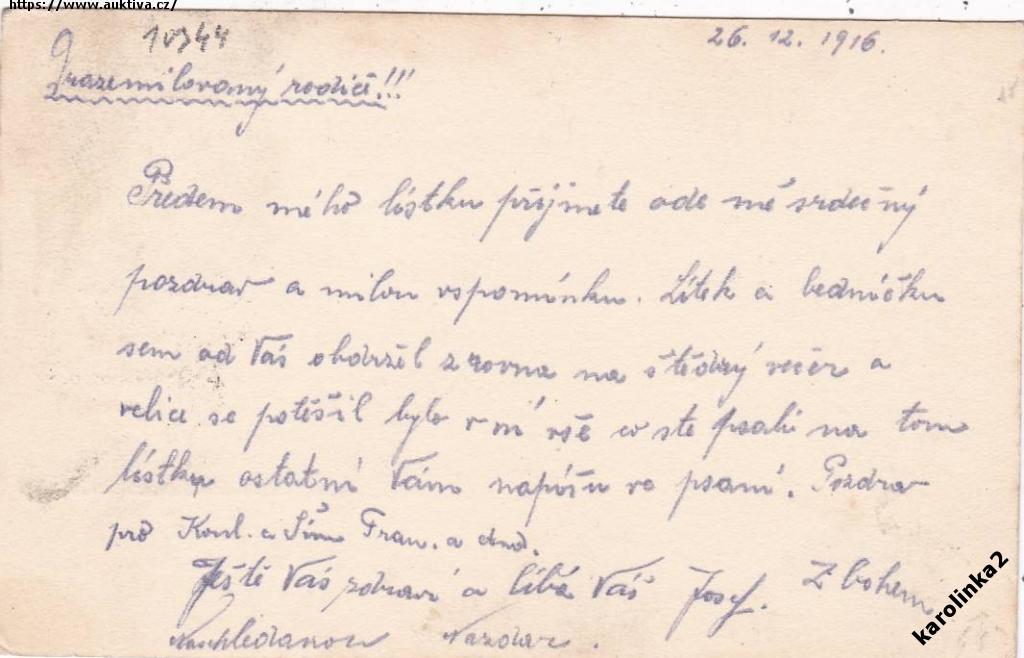 https://www.auktiva.cz/
10344
26. 12. 1916.
Drazemilovaný rodiči!!!
Předem mého lístku přijmete ode mě srdečný
pozdrav a milou vspomínku. Lítek a bedničku
sem od Vás obdržel zrovna na štědrý večer a
velice se potěšil bylo v ní vše co ste psali na tom
lístku ostatní Vám napíšu ve psaní. Pozdrav
pro a Fran. a
Ještě Vás zdraví a líbá Váš Josef. Z bohem
Naschledanou Nazdar.
karolinka2